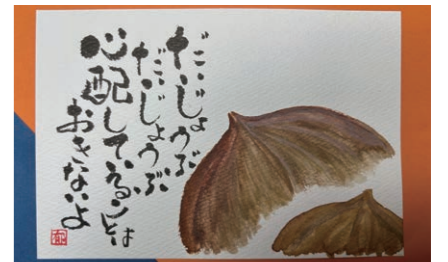 だいじょうぶ
だいじょうぶ
心配していることは
おきないよ